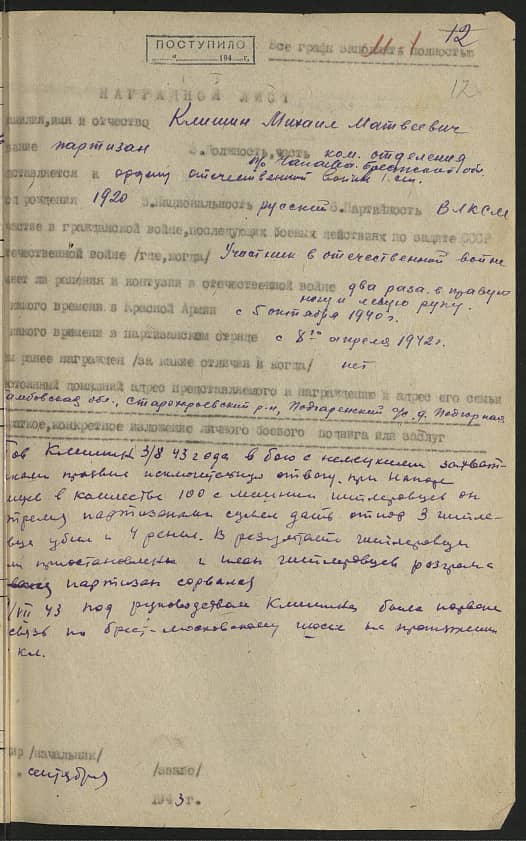 12
ПОСТУПИЛО
" 194 г.
Все графы заполнять полностью
12
НАГРАДНОЙ ЛИСТ
амилия, имя и отчество Климин Михаил Матвеевич
вание партизан 3. Должность, часть ком. отделения
п/о Чапаева Брестской обл.
дставляется к ордену отечественной войны I ст.
од рождения 1920 5. Национальность русский 6. Партийность ВЛКСМ
частие в гражданской войне, последующих боевых действиях по защите СССР
течественной войне /где, когда/ Участник в отечественной войне
меет ли ранения и контузии в отечественной войне два раза в правую
ногу и левую руку.
какого времени в Красной Армии с 5 октября 1940 г.
какого времени в партизанском отряде с 8го апреля 1942 г.
м ранее награжден /за какие отличия и когда/ нет
остоянный домашний адрес представляемого к награждению и адрес его семьи
амбовская обл., Староюрьевский р-н, Подгоренский с/с д. Подгорная
раткое, конкретное изложение личного боевого подвига или заслуг
Тов Климин 3/8 43 года в бою с немецкими захват-
чиками проявил исключительную отвагу. при нападе
в количестве 100 с лишним гитлеровцев он
тремя партизанами сумел дать отпор 3 гитле-
вца убил и 4 ранил. В результате гитлеровцы
ли приостановлены и план гитлеровцев разгрома
партизан сорвался
/VIII 43 под руководством Климина была порвана
связь по Брест-Московскому шоссе на протяжении
км.
ир /начальник/
сентября /звание/
1943 г.